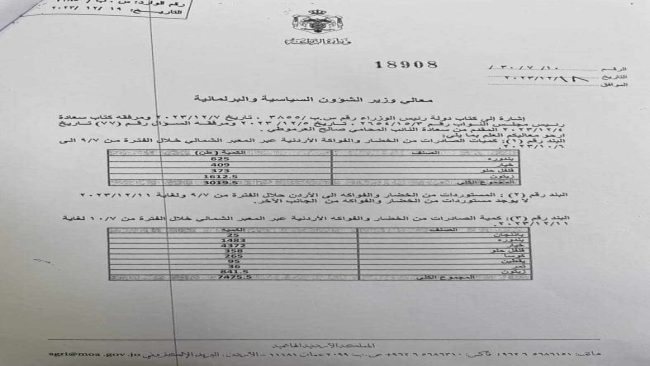 رقم الوارد:
التاريخ: ١٩ / ١٢ / ٢٠٢٣
وزارة الزراعة
18908
الرقم ٣٠/٧/١٠
التاريخ ٢٠٢٣/١٢/١٨
الموافق
معالي وزير الشؤون السياسية والبرلمانية
إشارة إلى كتاب دولة رئيس الوزراء رقم س.ب/٣٨٥٥ تاريخ ٢٠٢٣/١٢/٧ ومرفقه كتاب سعادة
رئيس مجلس النواب رقم ٢٦٥٤/١٥/٣ تاريخ ٢٠٢٣/١٢/٥ ومرفقه السؤال رقم (٧٧) تاريخ
٢٠٢٣/١٢/٤ المقدم من سعادة النائب المحامي صالح العرموطي.
ارجو معاليكم العلم بما يلي:
البند رقم (١): كميات الصادرات من الخضار والفواكة الأردنية عبر المعبر الشمالي خلال الفترة من ٩/٧ الى
٢٠٢٣/١٠/٦
الصنف الكمية (طن)
بندورة 625
خيار 409
فلفل حلو 373
زيتون 1612.5
المجموع الكلي 3019.5
البند رقم (٢): المستوردات من الخضار والفواكه الى الأردن خلال الفترة من ٩/٧ ولغاية ٢٠٢٣/١٢/١١
لا يوجد مستوردات من الخضار والفواكه من الجانب الآخر.
البند رقم (٣): كمية الصادرات من الخضار والفواكة الأردنية عبر المعبر الشمالي خلال الفترة من ١٠/٧ لغاية
٢٠٢٣/١٢/١١
الصنف الكمية
باذنجان 25
بندورة 1483
خيار 4372
فلفل حلو 358
كوسا 265
يقطين 95
تمر 36
زيتون 841.5
المجموع الكلي 7475.5
المملكة الأردنية الهاشمية
هاتف: ٥٦٨٦١٥١ ٦ ٩٦٢+ فاكس: ٥٦٨٦٣١٠ ٦ ٩٦٢+ ص.ب ٢٠٩٩ عمان ١١١٨١ - الأردن، البريد الإلكتروني agri@moa.gov.jo